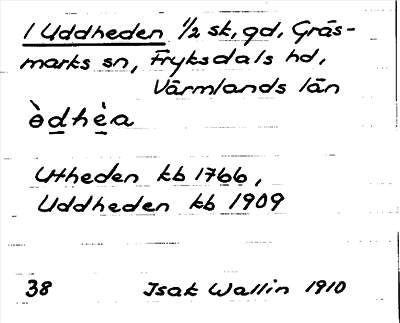 1 Uddheden 1/2 sk, gd, Gräs-
marks sn, Fryksdals hd,
Värmlands län
ə̀dhèa
Utheden kb 1766,
Uddheden kb 1909
38 Isak Wallin 1910